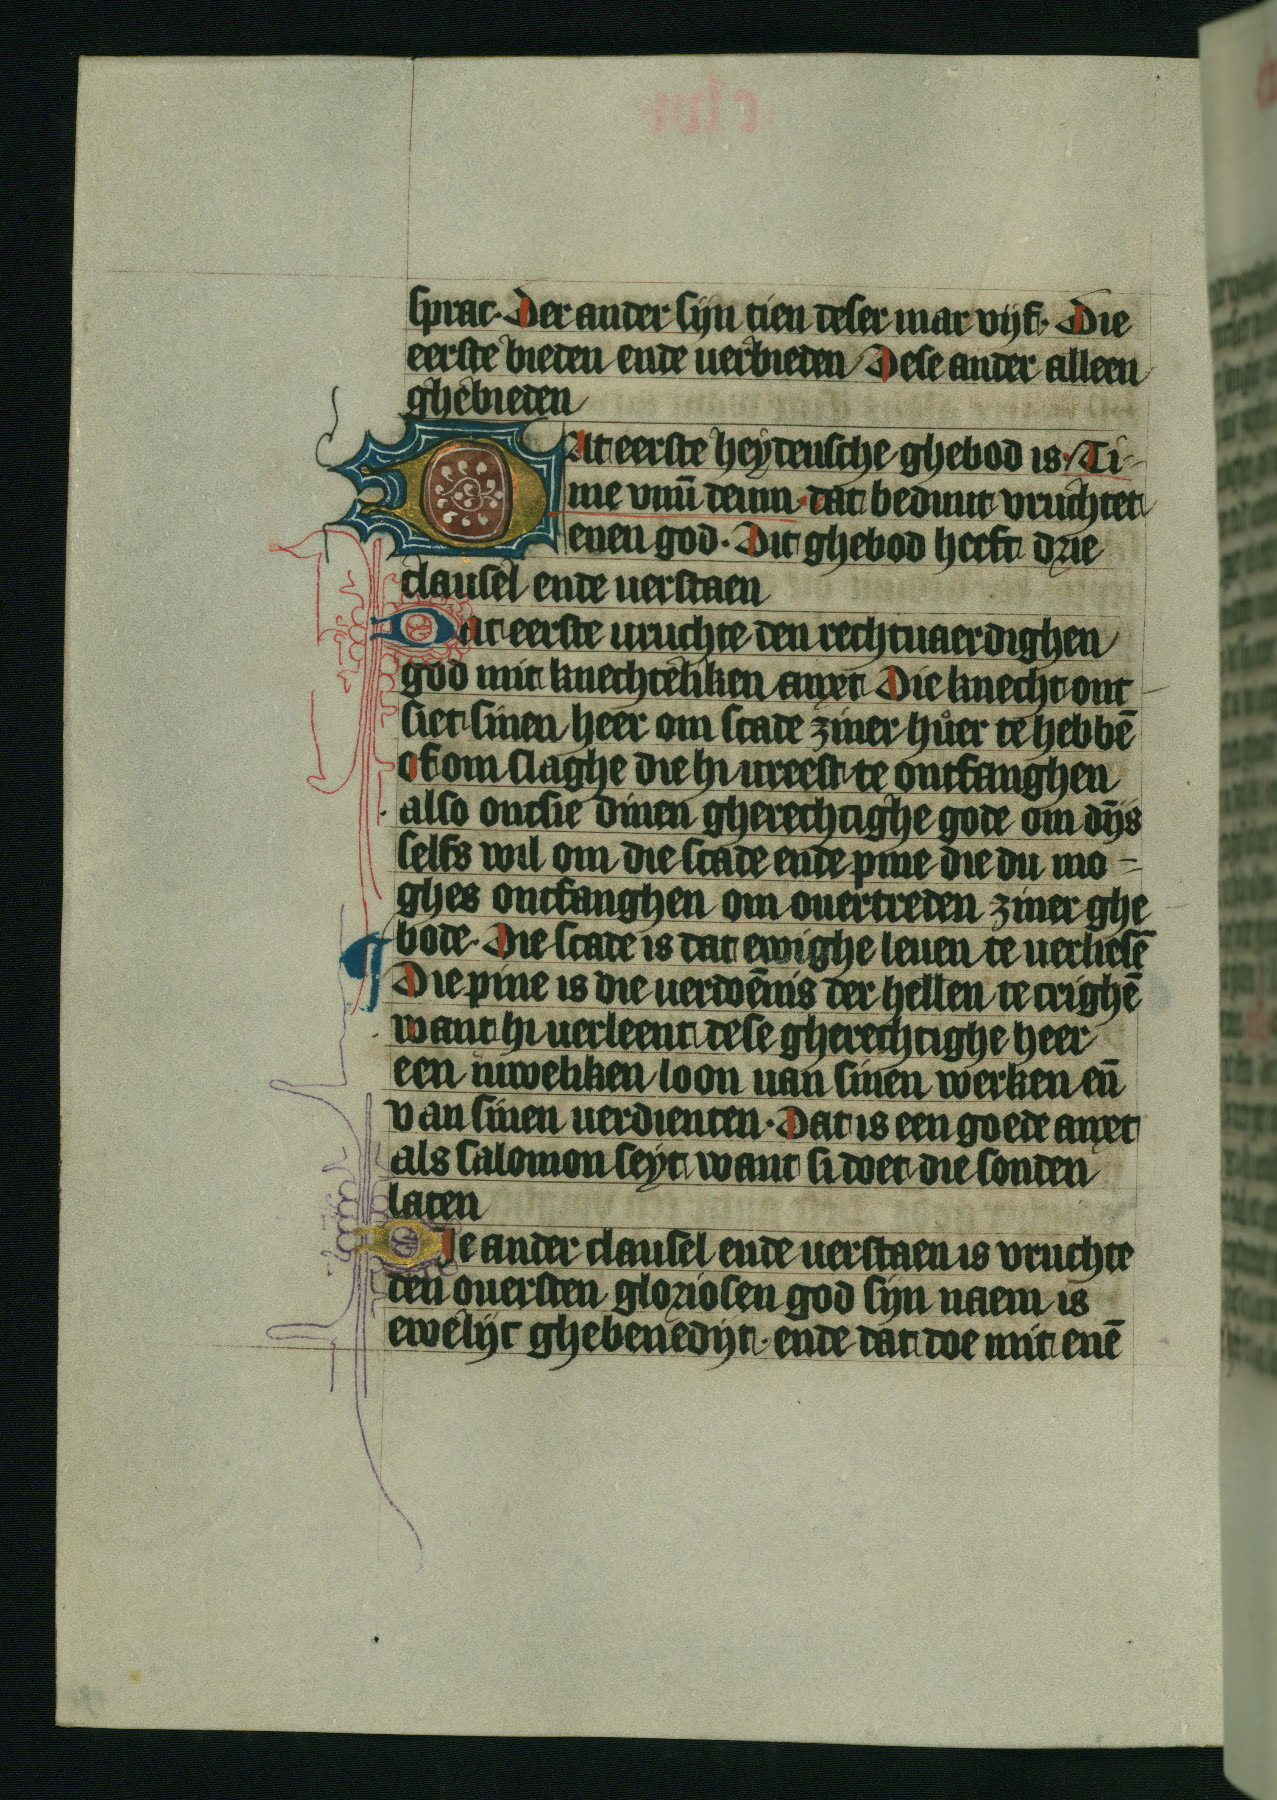 sprac. Der ander sijn tien deser mar vijf. Die
eerste bieden ende uerbieden Dese ander alleen
ghebieden
DAt eerste heydensche ghebod is. Ti-
me vnu̅ deum. dat beduut vruchtet
enen god. Dit ghebod heeft drie
clausel ende uerstaen
Dat eerste uruchte den rechtuaerdighen
god mit knechteliken anxt Die knecht ont
siet sinen heer om scade ziner hůer te hebbe̅
of om slaghe die hi ureest te ontfanghen
also ontsie dinen gherechtighe gode om dy̅s
selfs wil om die scade ende pine die du mo-
ghes ontfanghen om ouertreden ziner ghe
bode. Die scade is dat ewighe leuen te uerliese̅
Die pine is die uerdoe̅nis der hellen te crighe̅
want hi uerleent dese gherechtighe heer
een uweliken loon uan sinen werken en̅
van sinen uerdienten. Dat is een goede anxt
als salomon seyt want si doet die sonden
laten
Die ander clausel ende uerstaen is vruchte
den ouersten gloriosen god sijn naem is
ewelijc ghebenedijt. ende dat doe mit ene̅